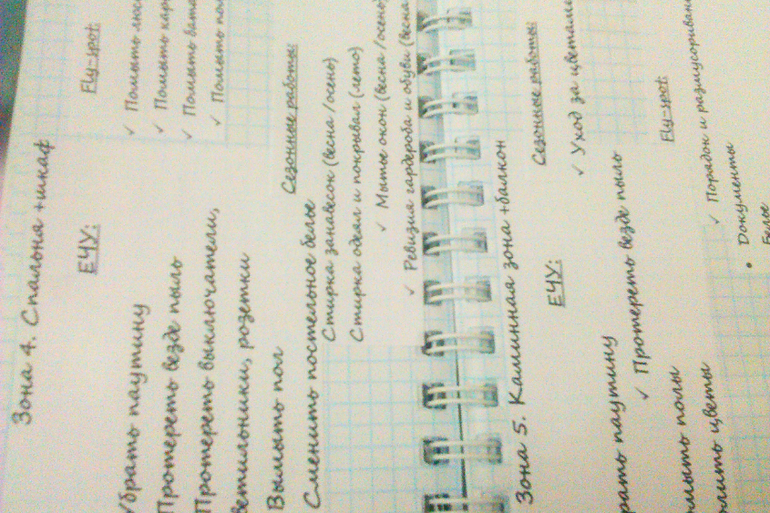 Зона 4. Спальня +шкаф
ЕЧУ:
Убрать паутину
Протереть везде пыль
Протереть выключатели,
светильники, розетки
Вымыть пол
Сменить постельное белье
Fly-spot:
✓ Помыть
✓ Помыть
✓ Помыть
✓ Помыть
Сезонные работы:
Стирка занавесок (весна /осень)
Стирка одеял и покрывал (лето)
✓ Мытье окон (весна /осень)
✓ Ревизия гардероба и обуви (весна
Зона 5. Каминная зона +балкон
ЕЧУ:
рать паутину
✓ Протереть везде пыль
омыть полы
олить цветы
Сезонные работы:
✓ Уход за цветами
Fly-spot:
✓ Порядок и размусоривани
• Документы
Белье